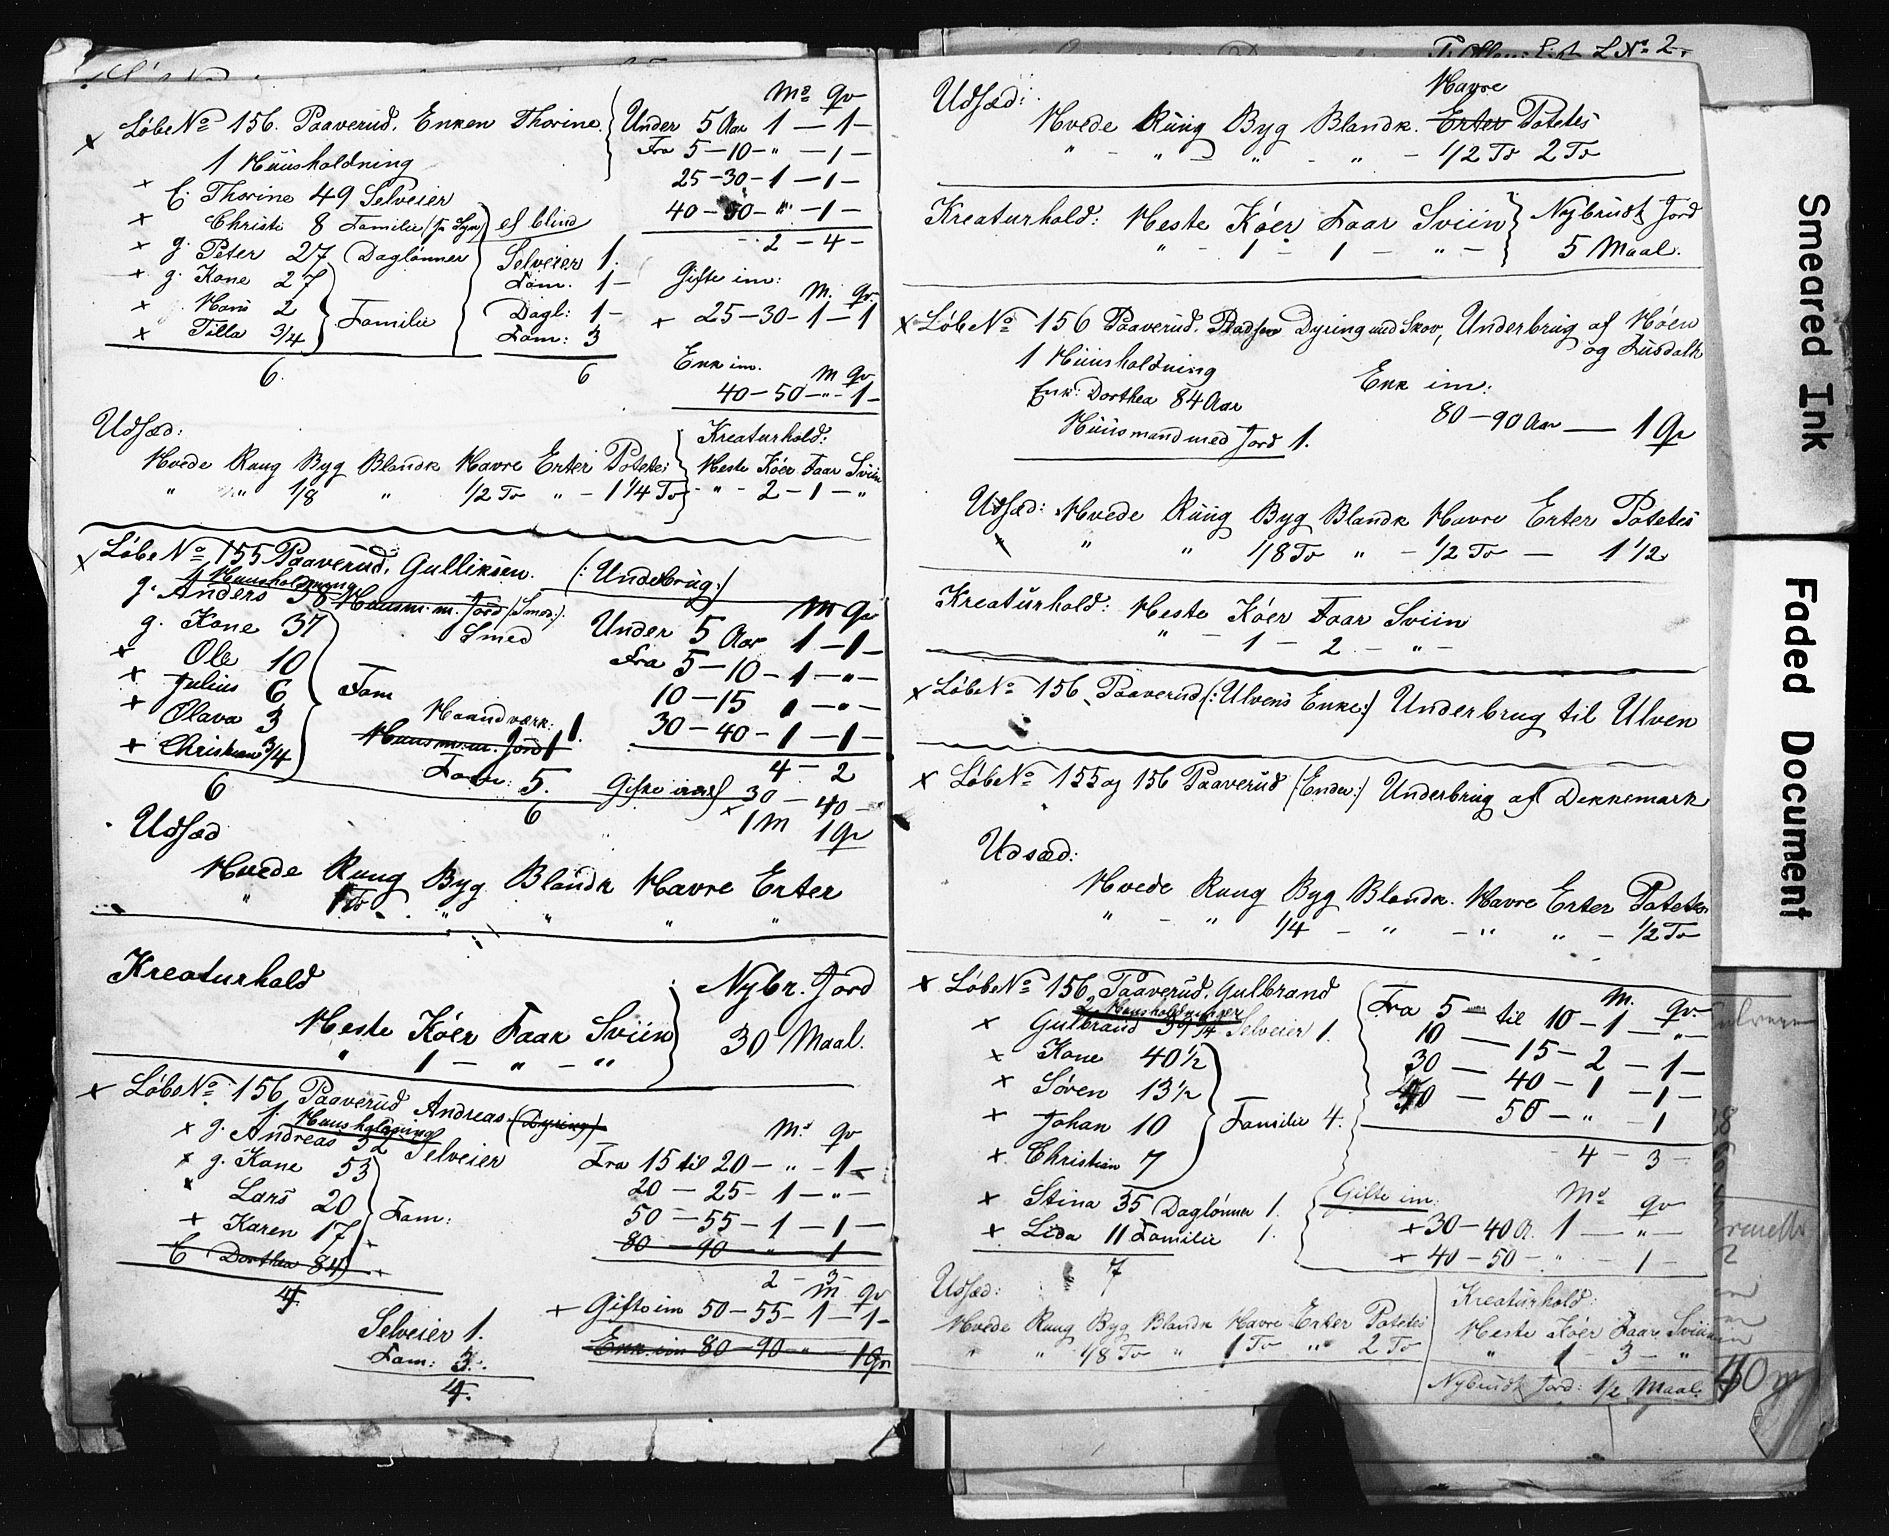 Md. Qv
x Løbe No 156. Paaverud. Enken Thorine. Under 5 Aar 1 — 1 —
1 Huusholdning Fra 5 — 10 — " — 1 —
25 — 30 — 1 — 1 —
x E. Thorine 49 Selveier 40 — 50 — " — 1 —
x Christi 8 Familie ef blind
2 — 4 —
x g. Peter 27 Daglønner Selveier 1.
x g. Kone 27 Fam. 1 — Gifte im: M. Qv.
x Hans 2 Familie Dagl: 1 — x 25 — 30 — 1 — 1
x Tilla 3/4 Fam: 3
6. 6
Enk im. M Qv
40 — 50 — " — 1 —
Udsæd: Kreaturhold:
Hvede Rug Byg Blandk Havre Erter Potetes Heste Køer Faar Sviin
" " 1/8 " 1/2 To " — 1 1/4 To " — 2 — 1 — "
x Løbe No 155 Paaverud. Gulliksen. (: Underbrug :)
1 Huusholdning
g. Anders 38 Huusm. m. Jord (Smed.) M Qv
g. Kone 37 Smed Under 5 Aar 1 — 1 —
x Ole 10 Fra 5 — 10 — 1 — " —
x Julius 6 Fam 10 — 15 1 — " —
x Olava 3 Haandværk: 1. 30 — 40 — 1 — 1 —
x Christian 3/4 Huusm. m. Jord 1 4 — 2
Fam: 5.
6 6 Gifte 30 — 40 —
x 1 M 1 Qv
Udsæd
Hvede Rung Byg Blandk Havre Erter
" 1 To " " " "
Kreaturhold Nybr. Jord
Heste Køer Faar Sviin 30 Maal.
" 1 — " — "
x Løbe No 156 Paaverud Andreas (Dyring)
1 Huusholdning
x g. Andreas 52 Selveier Md Qv
x g. Kone 53 Fra 15 til 20 — " — 1 —
x Lars 20 Fam: 20 — 25 — 1 — " —
x Karen 17 50 — 55 — 1 — 1 —
E Dorthea 84 x 80 — 90 — " — 1
4 2 — 3 —
M Qv
Selveier 1. x Gifte im 50 — 55 — 1 — 1 —
Fam: 3. Enk. im 80 — 90 — " — 1 Qv
4.
L No 2.
Udsæd: Havre
Hvede Ruug Byg Blandk. Erter Potetes
" — " — " — " — 1/2 To 2 To
Kreaturhold: Heste Køer Faar Sviin Nybrudt Jord
" — 1 — 1 — " — 5 Maal.
x Løbe No 156 Paaverud. Pladsen Dyring med Skov, Underbrug af Moen
og
1 Huusholdning
Enk: Dorthea 84 Aar Enk im:
Huusmand med Jord 1. 80 — 90 Aar — 1 Qv
Udsæd: Hvede Ruug Byg Blandk Havre Erter Potetes
" " 1/8 To " — 1/2 To — 1 1/2
Kreaturhold: Heste Køer Faar Sviin
" — 1 — 2 — " —
x Løbe No 156. Paaverud (: Ulvens Enke :) Underbrug til Ulven
x Løbe No 155 og 156 Paaverud (: Enden :) Underbrug af Dekkemark
Udsæd:
Hvede Ruug Byg Blandk. Havre Erter Potetes
" — " 1/4 — " — " " — 1/2 To
x Løbe No 156 Paaverud. Gulbrand M. Qv
2 Huusholdninger Fra 5 — til 10 — 1 — " —
x Gulbrand 39 1/4 Selveier 1. 10 — 15 — 2 — 1 —
x Kone 40 1/2 30 — 40 — 1 — 1 —
x Søren 13 1/2 40 — 50 — " — 1
x Johan 10 Familie 4. 4 — 3 —
x Christian 7
x Stina 35 Daglønner 1. Gifte im: Md Qv
x Lida 11 Familie 1. x 30 — 40 A. 1 — " —
7 x 40 — 50 — " — 1 —
Udsæd: Kreaturhold:
Hvede Ruug Byg Blandk Havre Erter Potetes Heste Køer Faar Sviin
" " 1/8 To " 1 To " 2 To " 1 — 3 — "
Nybrudt Jord: 1/2 Maal.
Smeared Ink
Faded Document